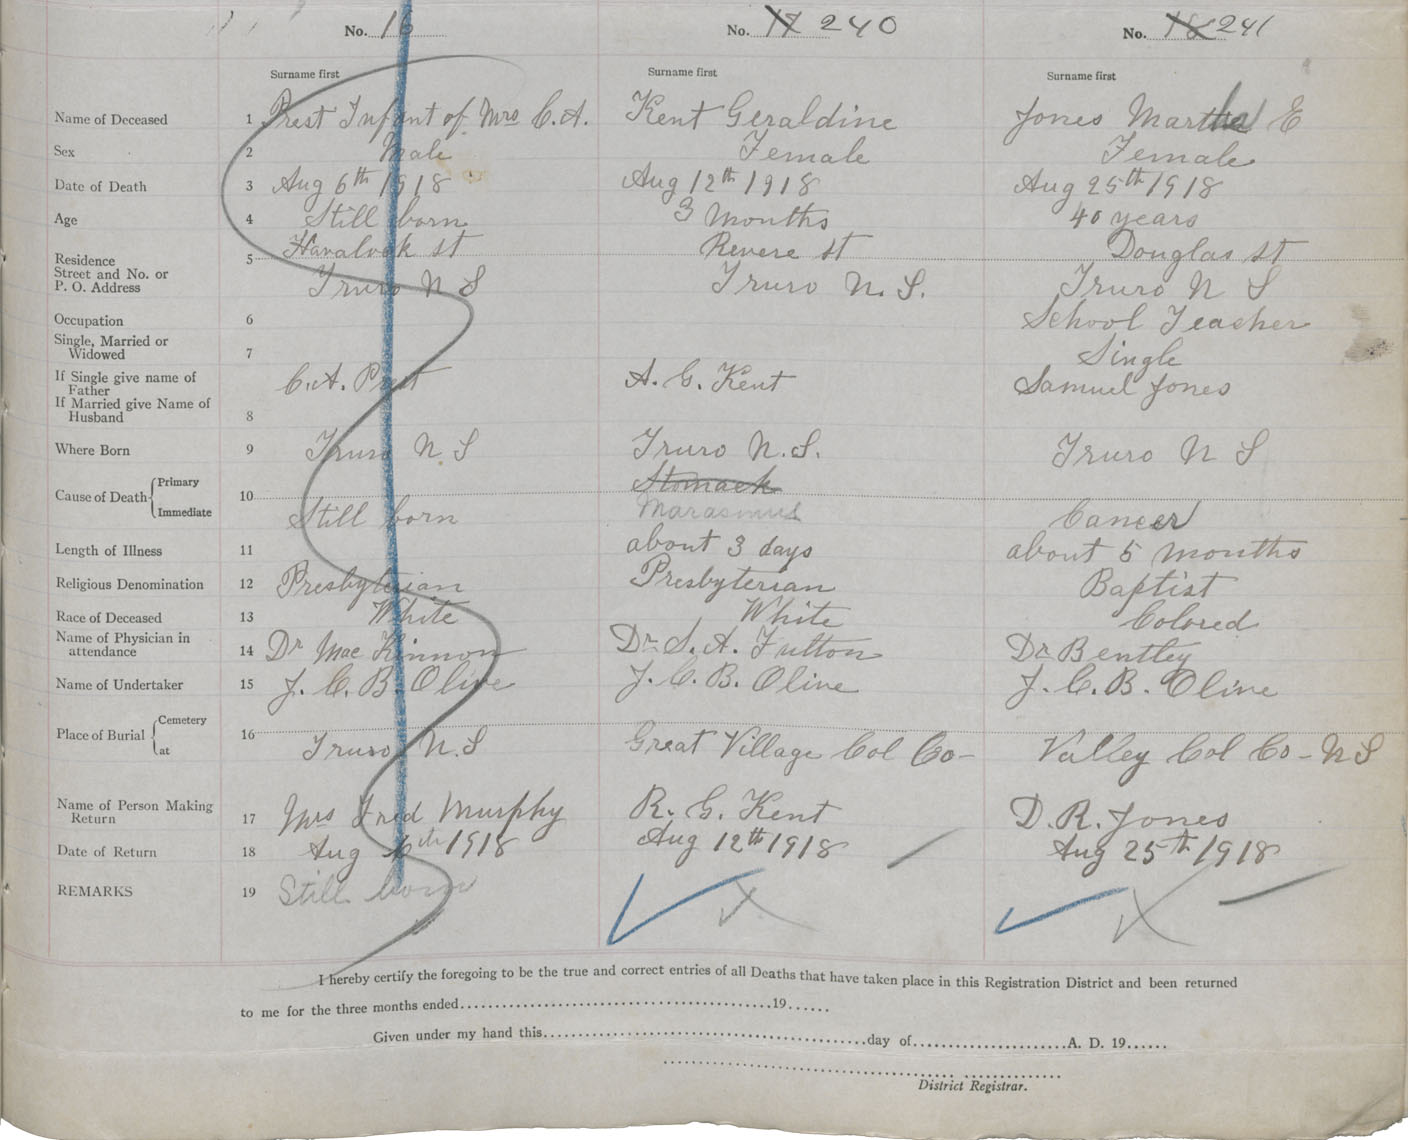 No. 16 No. 17 240 No. 18 241
Surname first Surname first Surname first
Name of Deceased 1 Prest Infant of Mrs C. A. Kent Geraldine Jones Martha E
Sex 2 Male Female Female
Date of Death 3 Aug 6th 1918 Aug 12th 1918 Aug 25th 1918
Age 4 Still born 3 Months 40 years
Residence 5 Havalook st Revere st Douglas st
Street and No. or
P. O. Address Truro N S Truro N. S. Truro N S
Occupation 6 School Teacher
Single, Married or
Widowed 7 Single
If Single give name of
Father C. A. Prest A. G. Kent Samuel Jones
If Married give Name of
Husband 8
Where Born 9 Truro N S Truro N.S. Truro N S
Cause of Death Primary 10 Stomach
Immediate Still born Marasmus Cancer
Length of Illness 11 about 3 days about 5 months
Religious Denomination 12 Presbyterian Presbyterian Baptist
Race of Deceased 13 White White Colored
Name of Physician in
attendance 14 Dr Mac Kinnon Dr S. A. Fulton Dr Bentley
Name of Undertaker 15 J. C. B. Olive J. C. B. Olive J. C. B. Olive
Place of Burial Cemetery 16
at Truro N.S Great Village Col Co- Valley Col Co - N S
Name of Person Making
Return 17 Mrs Fred Murphy R. G. Kent D. R. Jones
Date of Return 18 Aug 6th 1918 Aug 12th 1918 Aug 25th 1918
REMARKS 19 Still born
I hereby certify the foregoing to be the true and correct entries of all Deaths that have taken place in this Registration District and been returned
to me for the three months ended..........19......
Given under my hand this..........day of..........A. D. 19......
District Registrar.